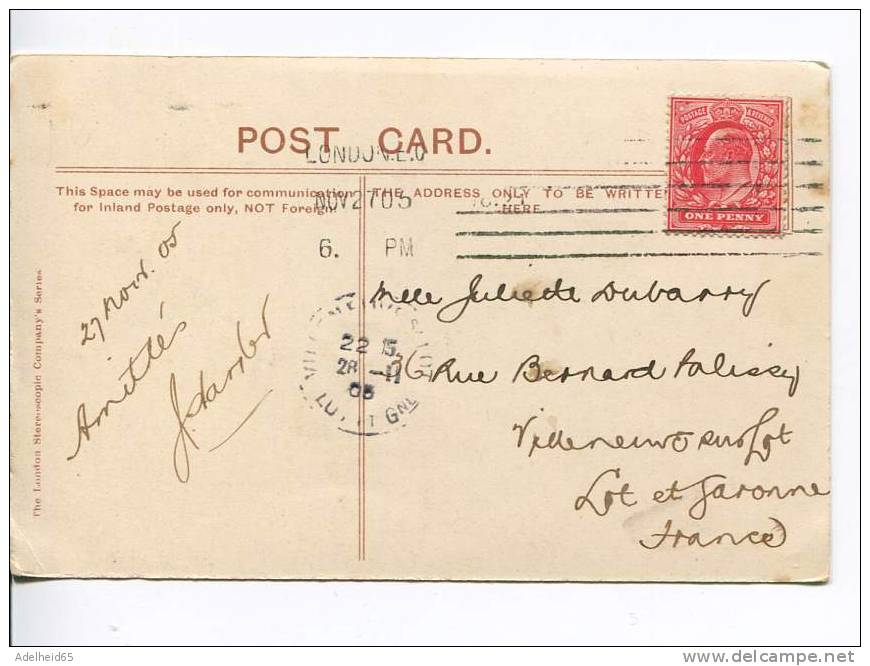 POST CARD.
LONDON.E.C
NOV 27 05
6. PM
POSTAGE & REVENUE
ONE PENNY
This Space may be used for communication
for Inland Postage only, NOT Foreign.
THE ADDRESS ONLY TO BE WRITTEN
HERE
The London Stereoscopic Company's Series
27 Novr. 05
Amitiés
Mlle Juliette Dubarry
36 Rue Bernard Palissy
Villeneuve sur Lot
Lot et Garonne
France
22 15
28 - 11
05
LOT ET GNE
Adelheid65
delcampe.net